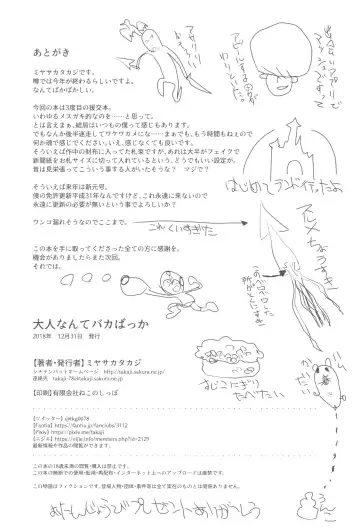 あとがき
ミヤサカタカジです。
噂では今年が終わるらしいですよ。
なんてばかばかしい。
今回の本は3度目の援交本。
いわゆるメスガキ的なのを……と思って。
とは言えまぁ、結局はいつもの僕って感じもあります。
でもなんか後半迷走してワケワカメにな…まぁでも、もう時間もねぇので
何か魂で感じてください。いぇ、感じなくても良いです。
そういえば作中の財布に入ってた札束ですが、あれは大半がフェイクで
新聞紙をお札サイズに切って入れているという、どうでもいい設定が。
昔は見栄張ってこういう事する人がいたそうな？　マジで？
そういえば来年は新元号。
僕の免許更新平成31年なんですけど、これ永遠に来ないので
永遠に更新の必要が無いという事でよろしいか？
ウンコ漏れそうなのでここまで。
この本を手に取ってくださった全ての方に感謝を。
機会がありましたらまた次回。
それでは。
大人なんてバカばっか
2018年　12月31日　発行
【著者・発行者】ミヤサカタカジ
シチテンバットホームページ　http://takaji.sakura.ne.jp
連絡先　takaji-78@takaji.sakura.ne.jp
【印刷】有限会社ねこのしっぽ
【ツイッター】@tkg9878
【Fantia】https://fantia.jp/fanclubs/3112
【Pixiv】https://pixiv.me/takaji
【ニジエ】https://nijie.info/members.php?id=2129
最新情報や作品の閲覧ができます。
この本の18歳未満の閲覧・購入は禁止です。
この本の無断での使用・転載・再配布・インターネット上へのアップロードは厳禁です。
この物語はフィクションです。登場人物・団体・事件等は全て架空のものとは関係ありません。
はじめてランド行ったよ
これ くいすぎた
たべたい